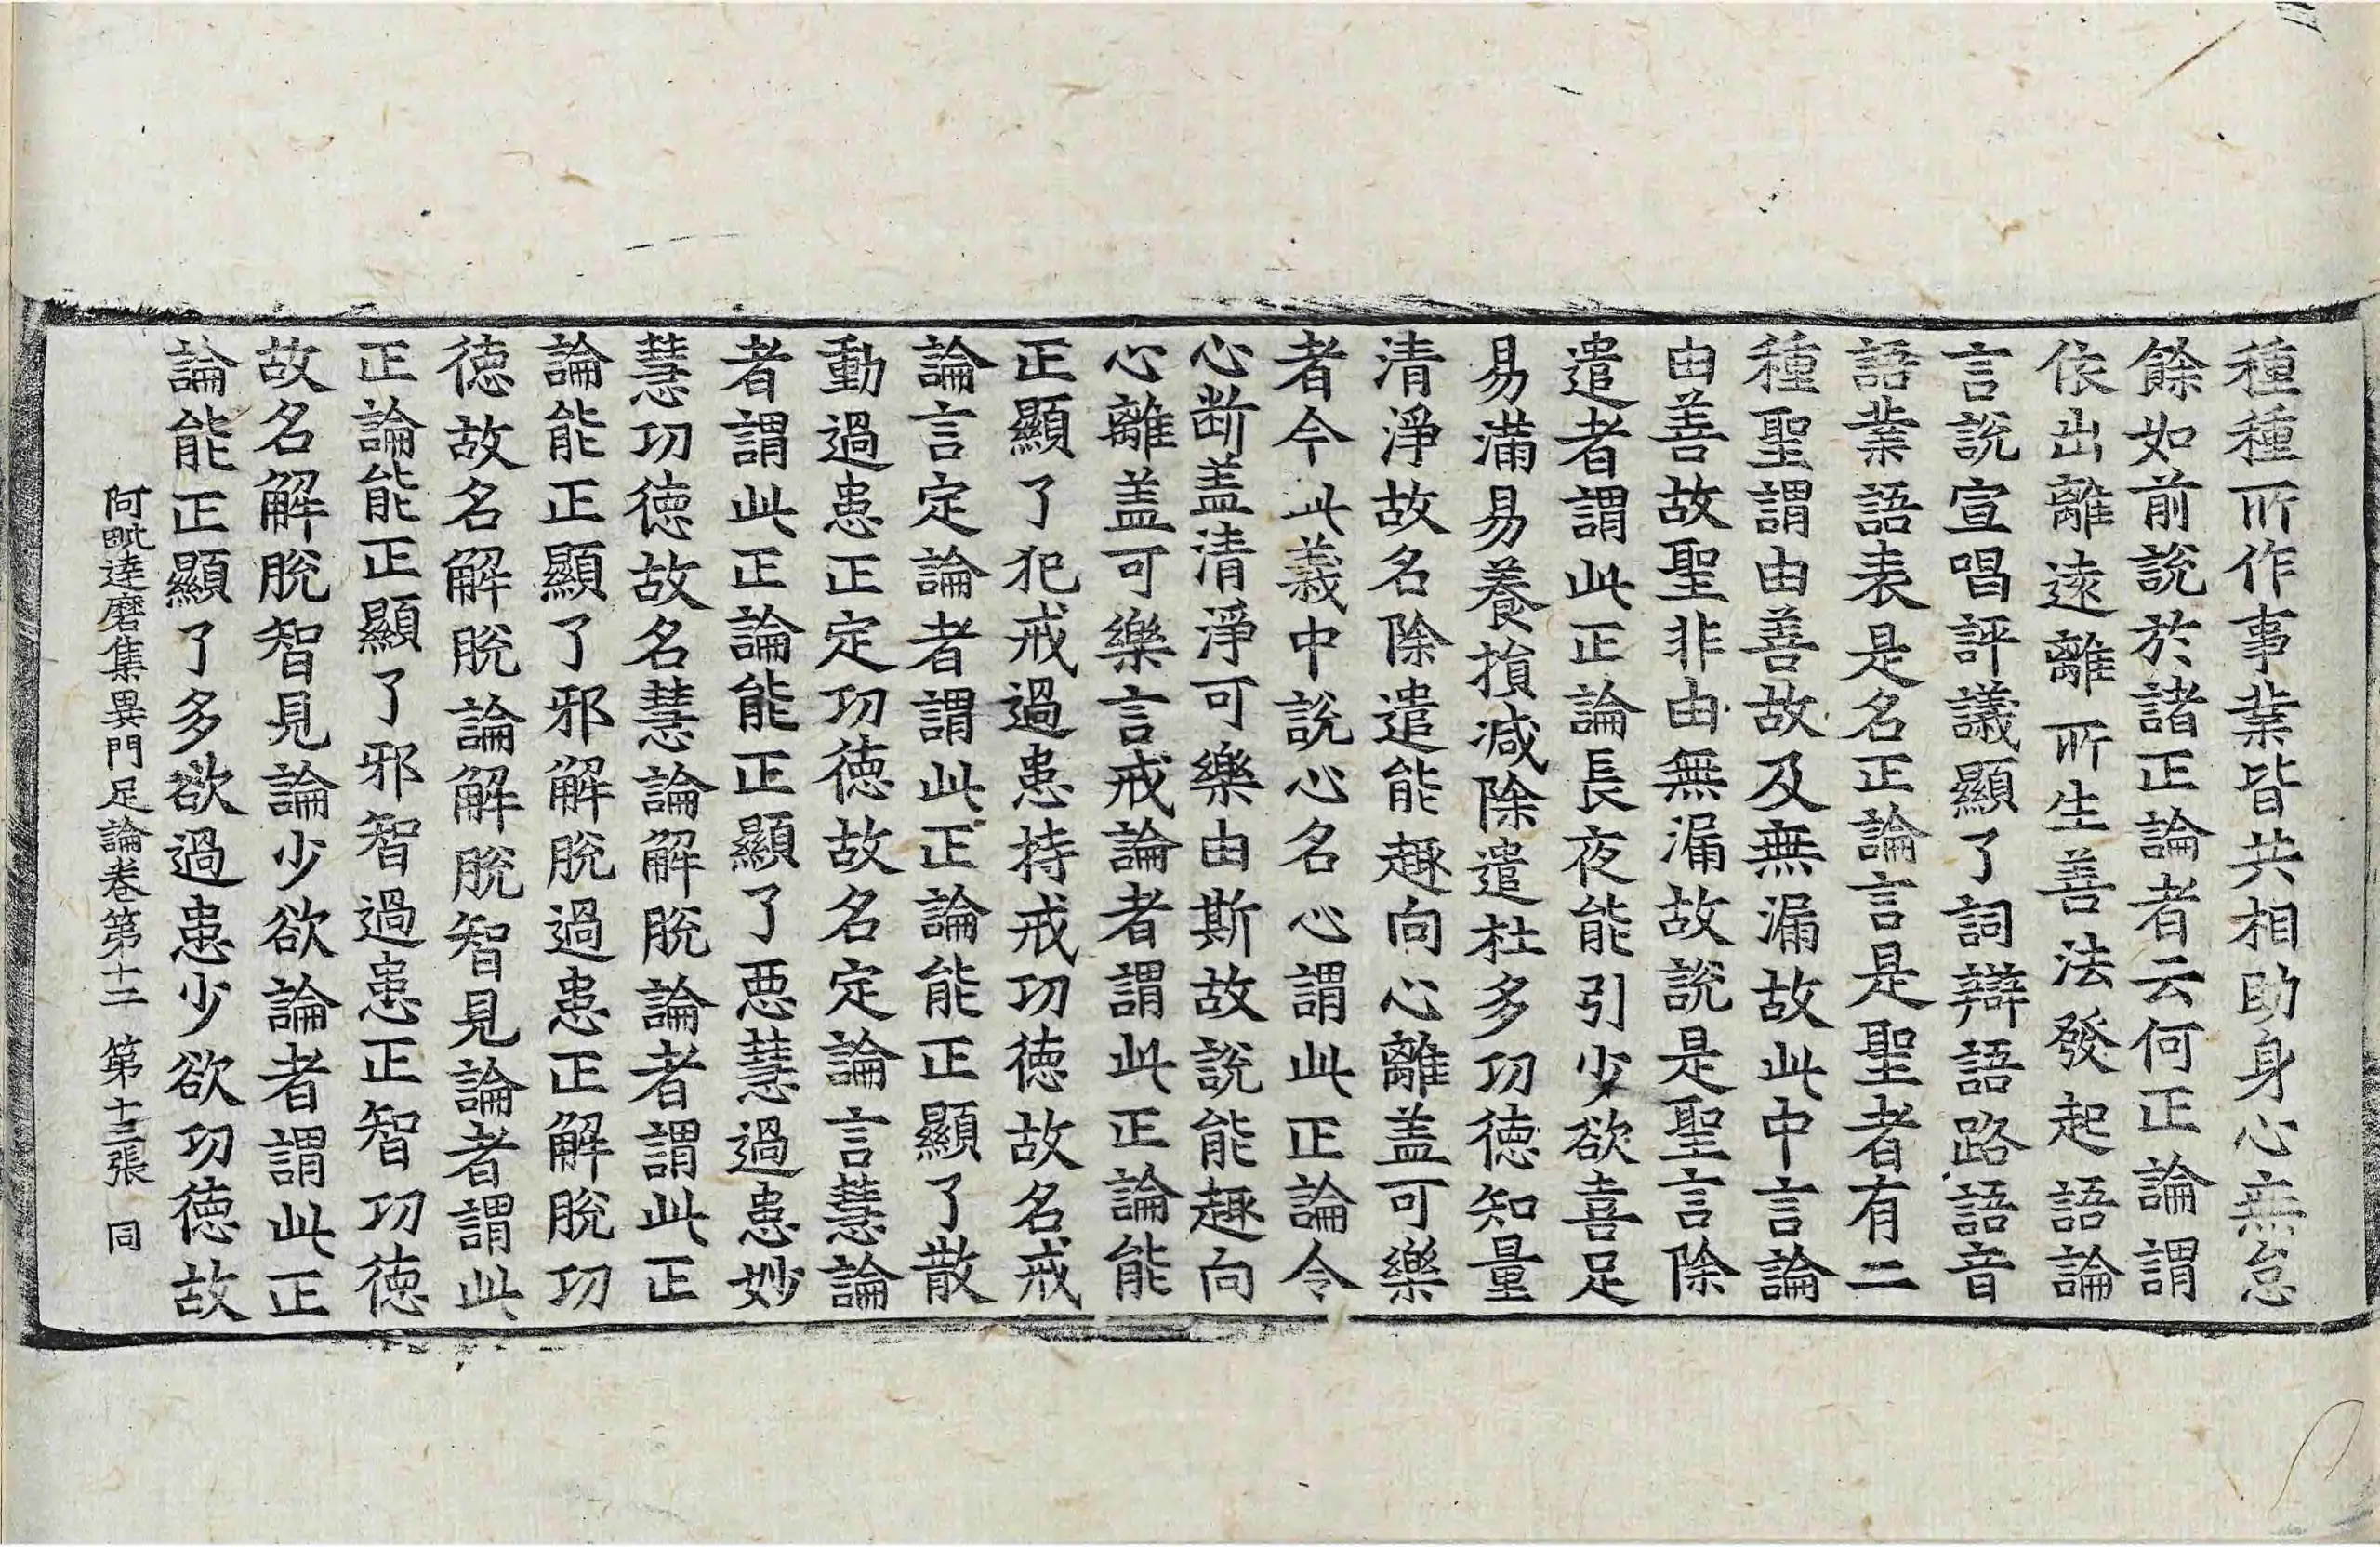 種種所作事業皆共相助身心無怠
餘如前說於諸正論者云何正論謂
依出離遠離所生善法發起語論
言說宣唱評議顯了詞辯語路語音
語業語表是名正論言是聖者有二
種聖謂由善故及無漏故此中言論
由善故聖非由無漏故說是聖言除
遣者謂此正論長夜能引少欲喜足
易滿易養損減除遣杜多功德知量
清淨故名除遣能趣向心離盖可樂
者今此義中說心名心謂此正論令
心断盖清淨可樂由斯故說能趣向
心離盖可樂言戒論者謂此正論能
正顯了犯戒過患持戒功德故名戒
論言定論者謂此正論能正顯了散
動過患正定功德故名定論言慧論
者謂此正論能正顯了惡慧過患妙
慧功德故名慧論解脫論者謂此正
論能正顯了邪解脫過患正解脫功
德故名解脫論解脫智見論者謂此
正論能正顯了邪智過患正智功德
故名解脫智見論少欲論者謂此正
論能正顯了多欲過患少欲功德故
阿毗達磨集異門足論卷第十二 第十三張 同